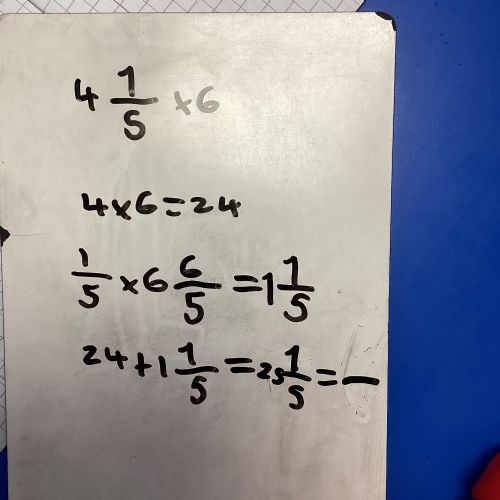 4 1/5 ×6
4×6=24
1/5 ×6 6/5 =1 1/5
24+1 1/5 =25 1/5 = —